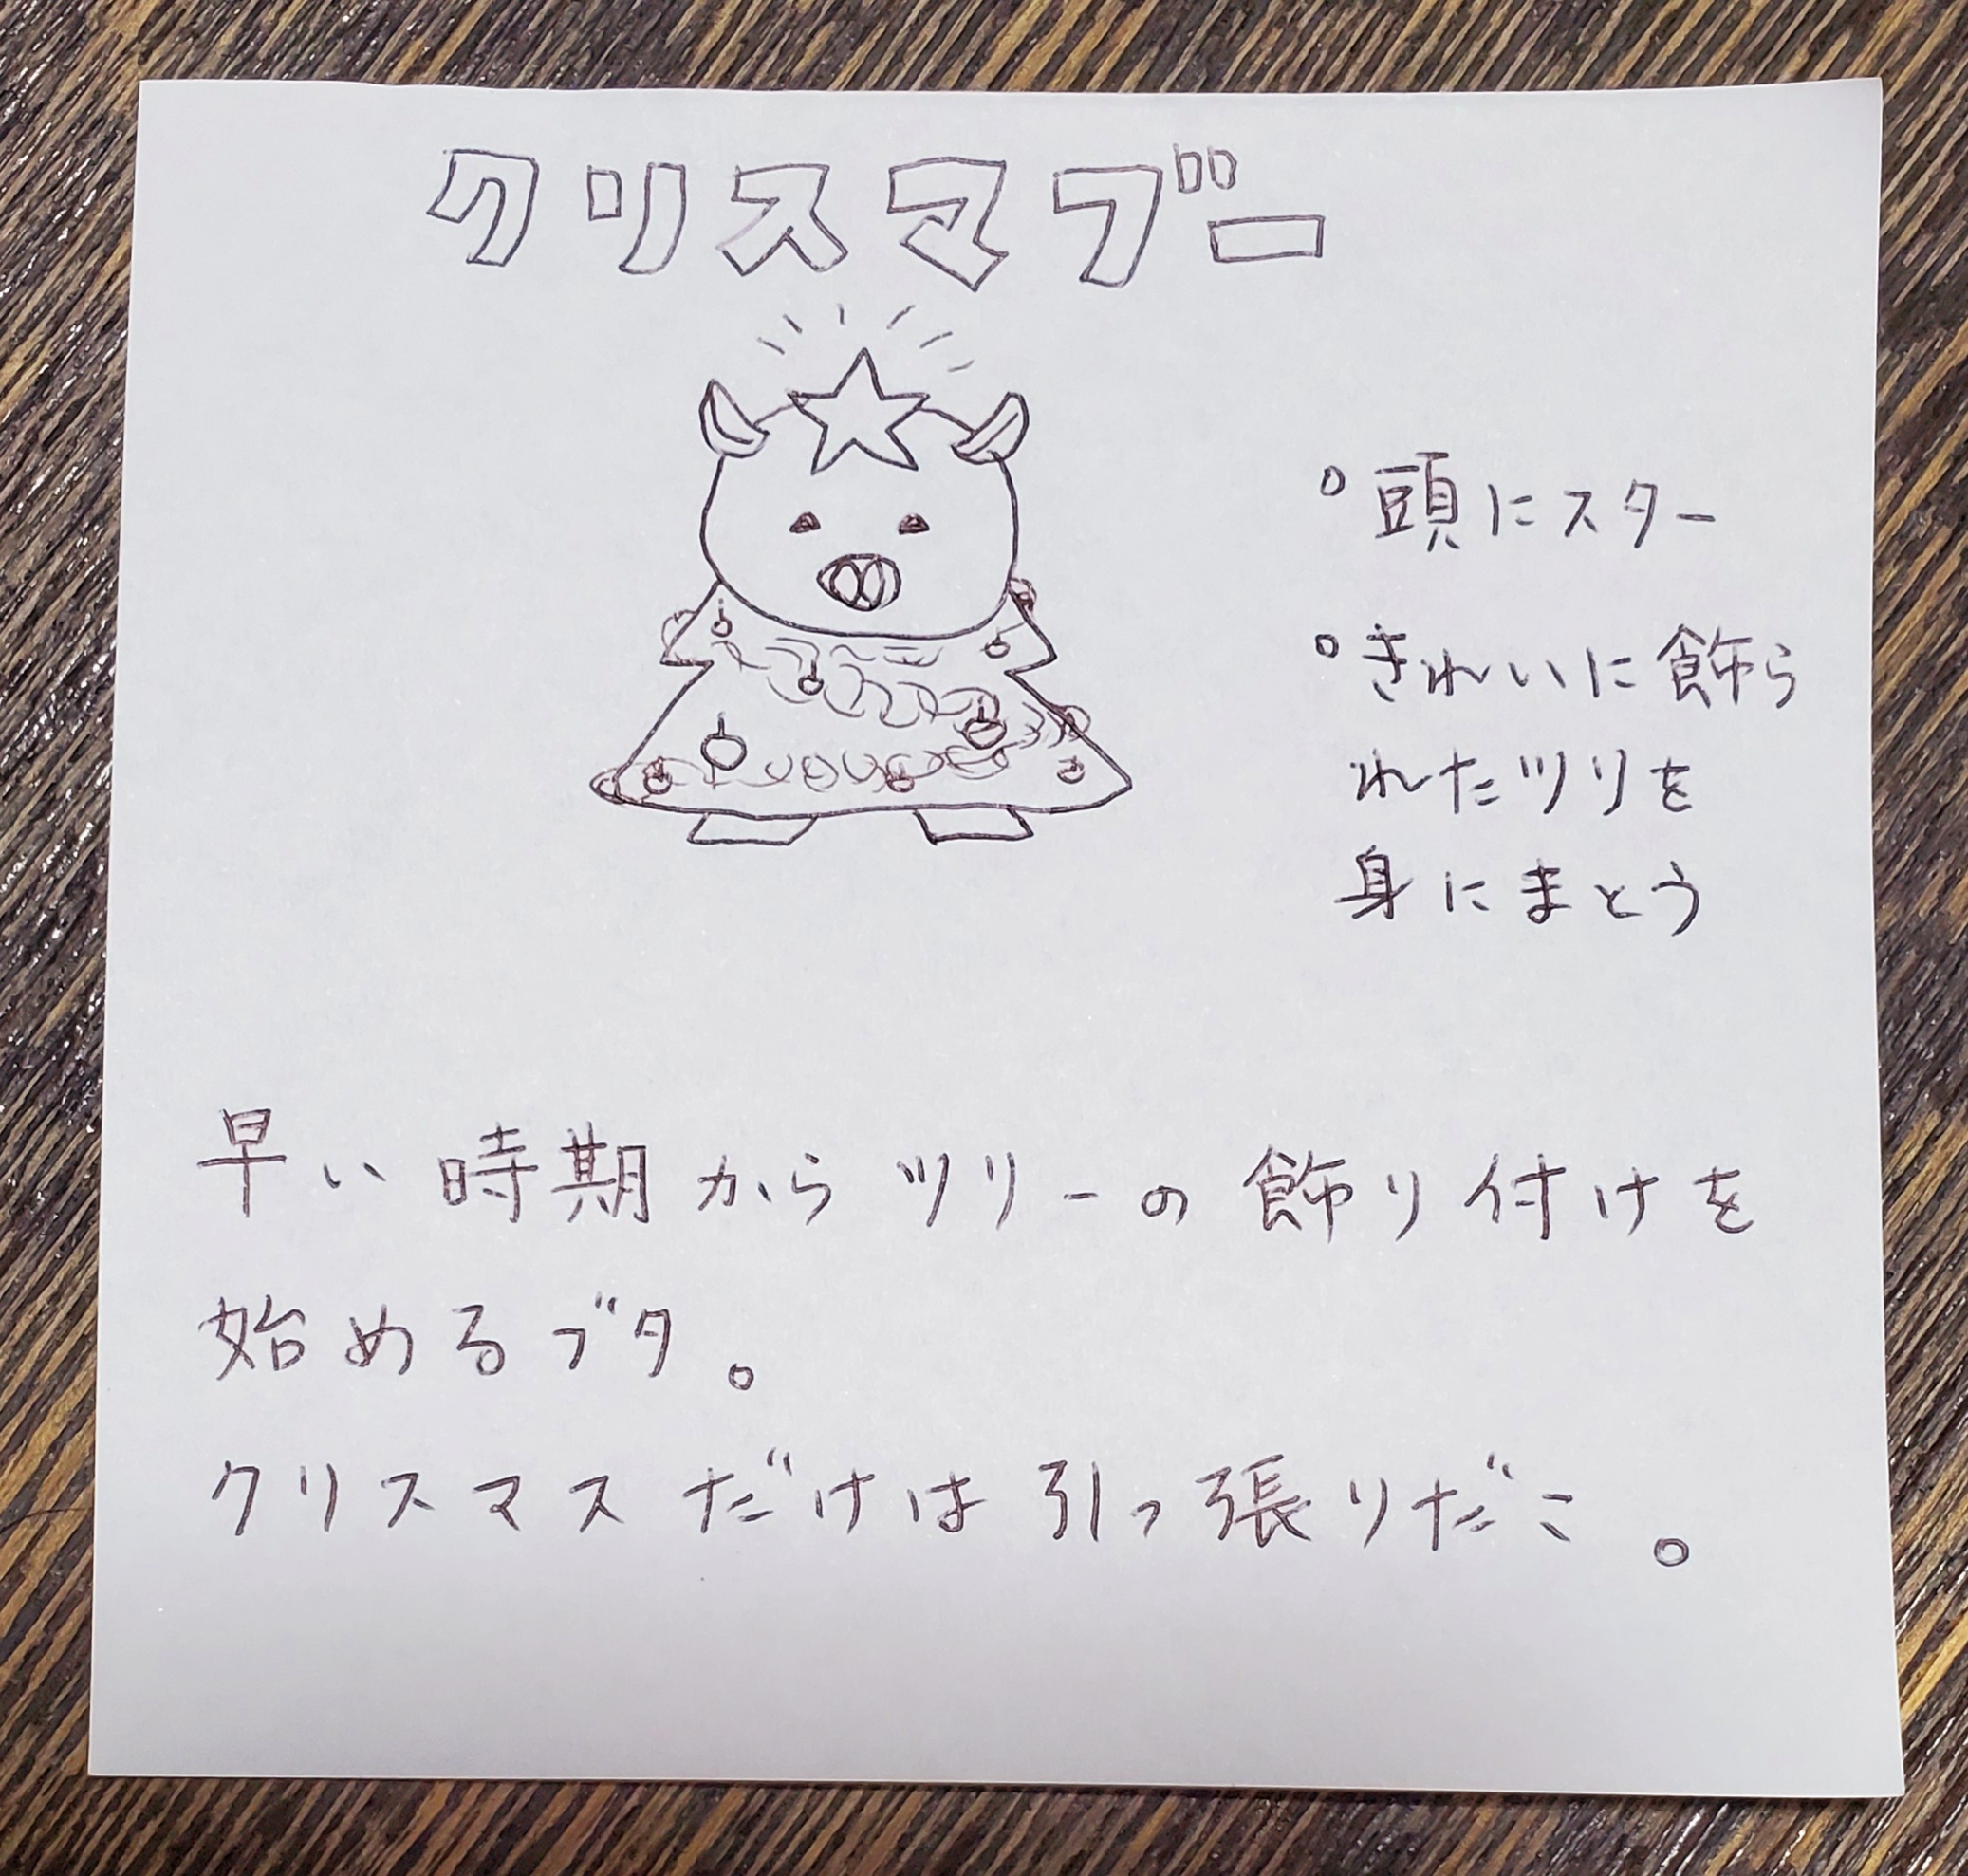 クリスマブー
°頭にスター
°きれいに飾ら
れたツリを
身にまとう
早い時期からツリーの飾り付けを
始めるブタ。
クリスマスだけは引っ張りだこ。